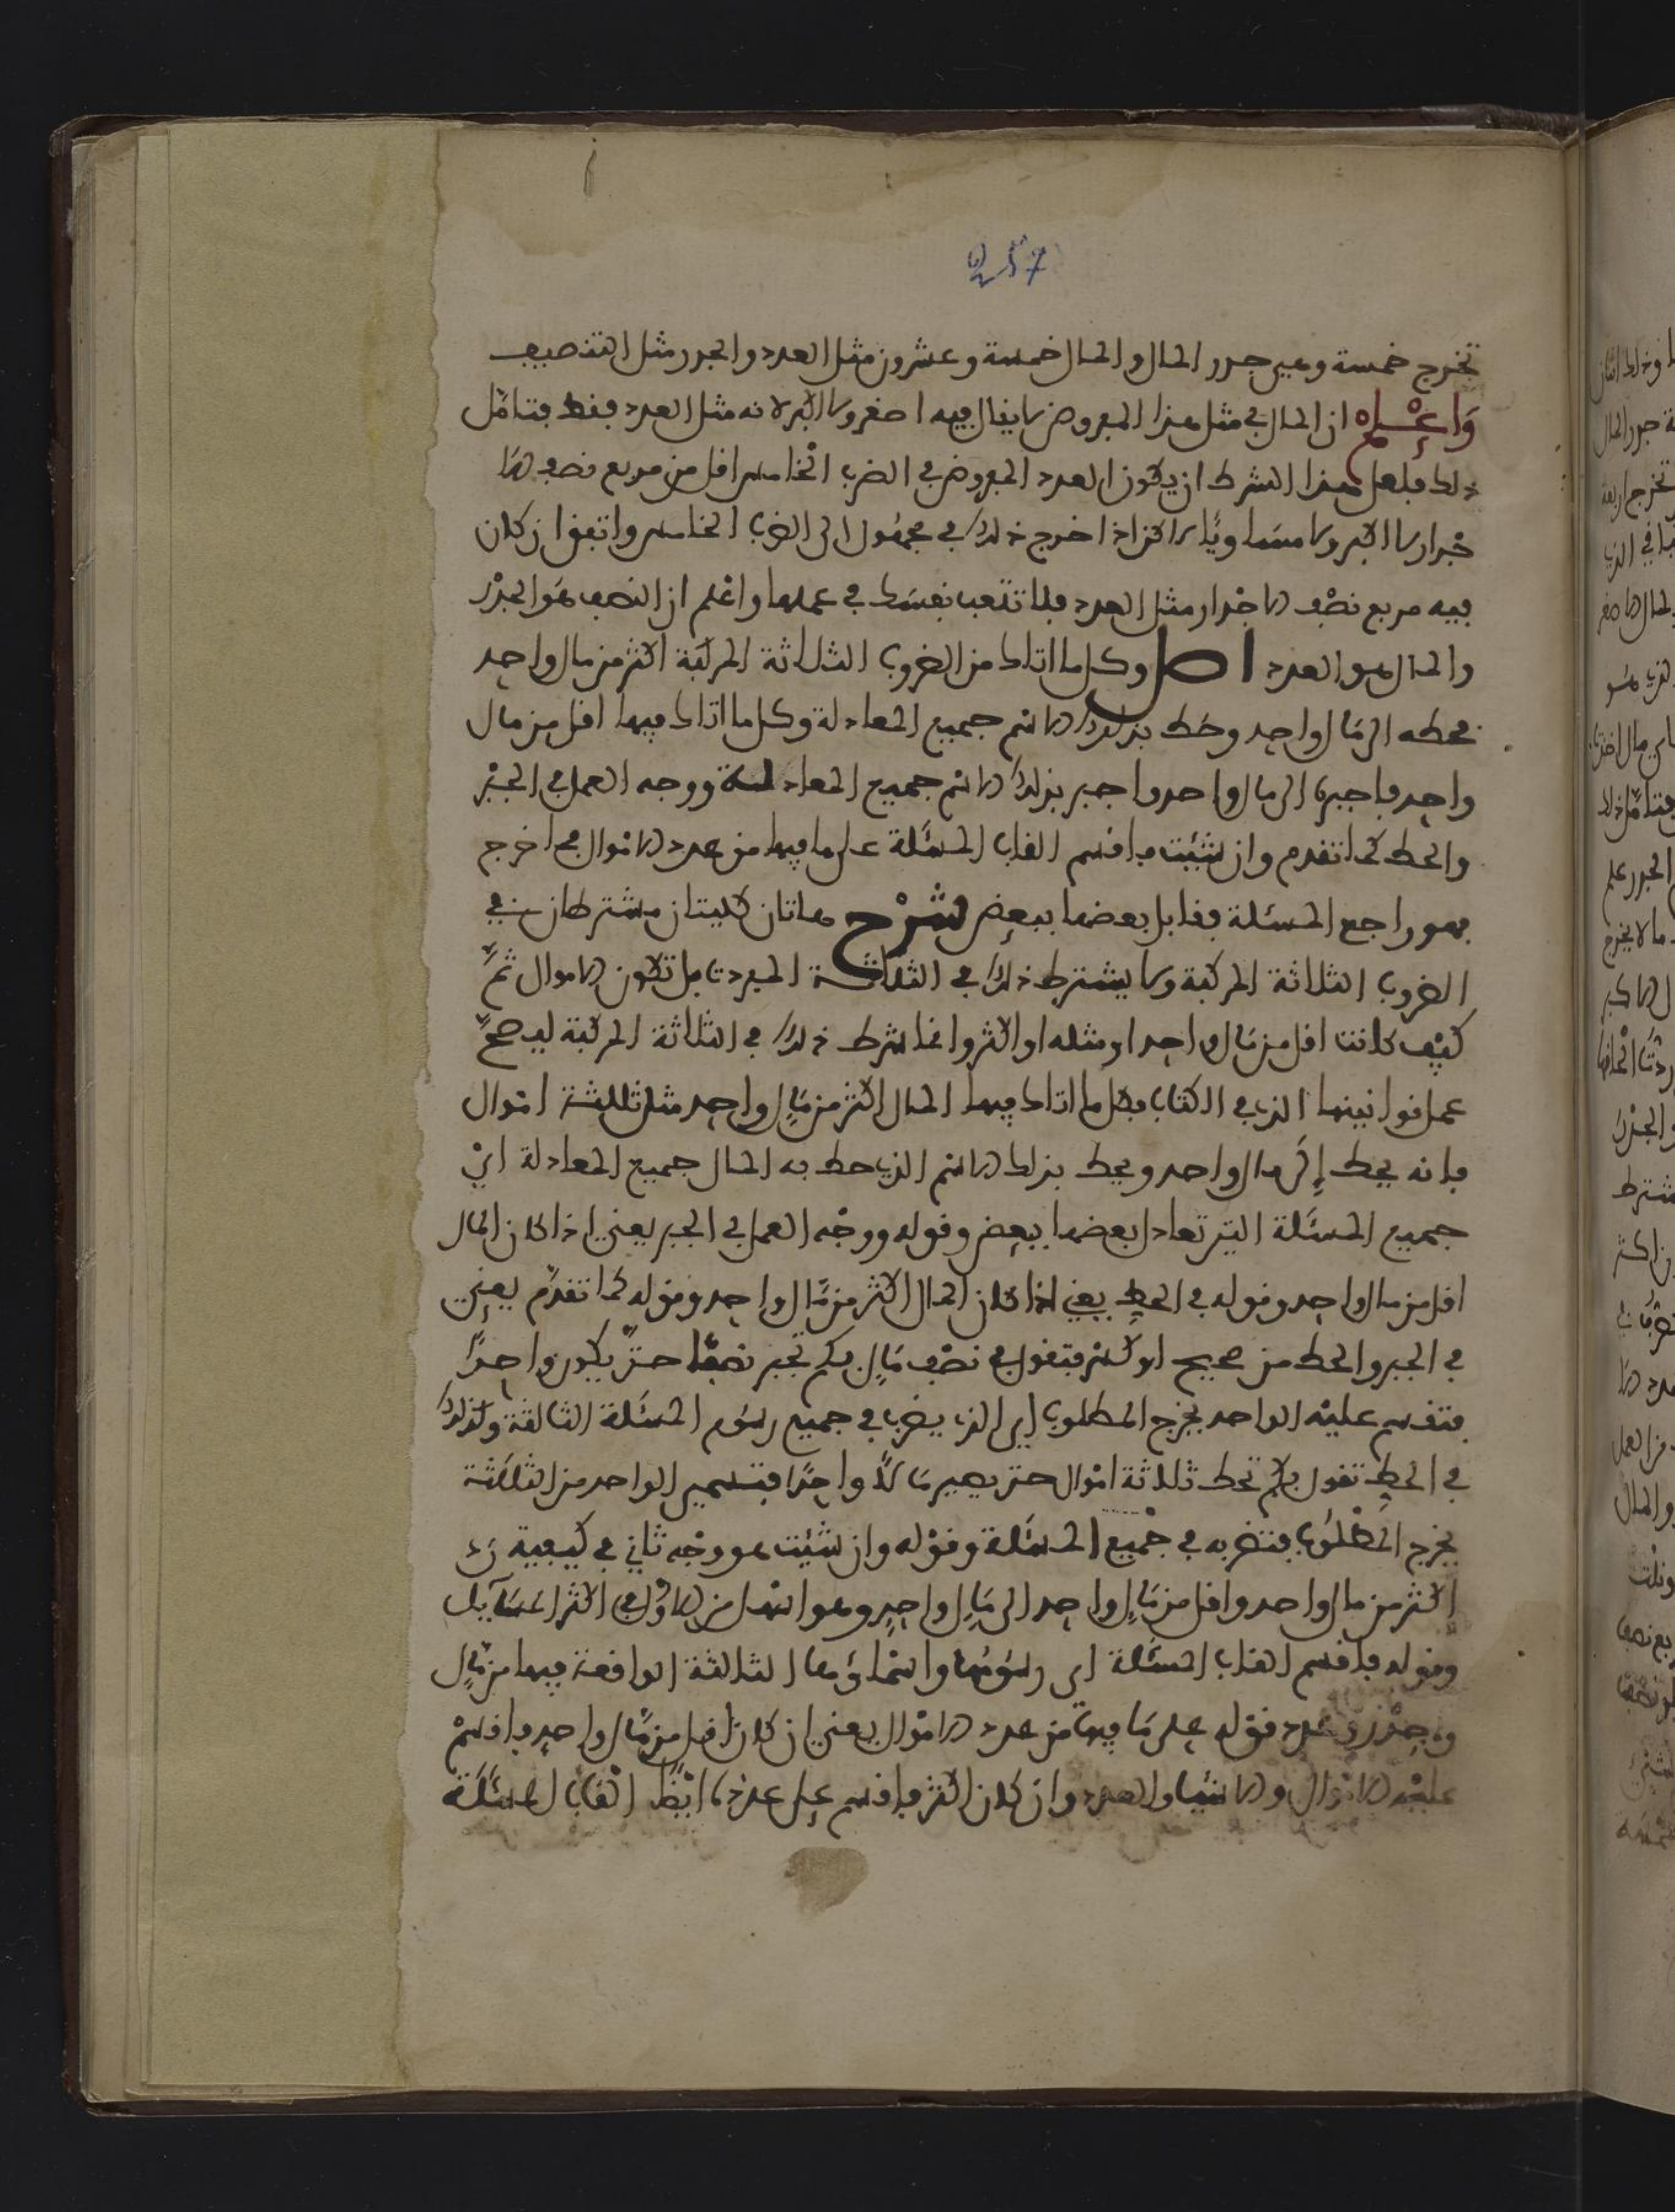 257
تخرج خمسة وهي جذر المال والمال خمسة وعشرون مثل العدد والجذر مثل التنصيف
واعلم ان المال في مثل هذا المفروض لا يقال فيه اصغر ولا اكبر لانه مثل العدد فقط فتامل
ذلك فلعل هذا الشرط ان يكون العدد المفروض في الضرب الخامس اقل من مربع نصف الا
جذار لا اكبر ولا مساويا لاكن اذا خرج ذلك في مجهول الى الضرب الخامس واتفق ان كان
فيه مربع نصف الاجذار مثل العدد فلا تتعب نفسك في عملها واعلم ان النصف هو الجذر
والمال هو العدد اصل وكل ما اتاك من الضروب الثلاثة المركبة اكثر من مال واحد
فحطه الى مال واحد وحط بذلك الاسم جميع المعادلة وكل ما اتاك فيها اقل من مال
واحد فاجبره الى مال واحد واجبر بذلك الاسم جميع المعادلة ووجه العمل في الجبر
والحط كما تقدم وان شئت فاقسم القاب المسئلة على ما فيها من عدد الاموال فما خرج
فهو راجع المسئلة فقابل بعضها ببعض شرح هاتان كليتان مشترطان في
الضروب الثلاثة المركبة ولا يشترط ذلك في الثلاثة المفردة بل تكون الاموال ثم
كيف كانت اقل من مال واحد او مثله او اكثر وانما اشرط ذلك في الثلاثة المركبة ليصح
عمل قوانينها الذي في الكتاب فكل ما اتاك فيها المال اكثر من مال واحد مثل ثلثة اموال
فانه يحط الى مال واحد ويحط بذلك الاسم الذي حط به المال جميع المعادلة اي
جميع المسئلة التي تعادل بعضها ببعض وقوله ووجه العمل في الجبر يعني اذا كان المال
اقل من مال واحد وقوله في الحط يعني اذا كان المال اكثر من مال واحد وقوله كما تقدم يعني
في الجبر والحط من صحيح او كسر فتقول في نصف مال بكم تجبر نصفا حتى يكون واحدا
فتقسم عليه الواحد يخرج المطلوب اي الذي يضرب في جميع رسوم المسئلة الثالثة وكذلك
في الحط تقول بكم تحط ثلاثة اموال حتى يصير مالا واحدا فتسمي الواحد من الثلاثة
يخرج المطلوب فتضربه في جميع المسئلة وقوله وان شئت هو وجه ثاني في كيفية رد
اكثر من مال واحد واقل من مال واحد الى مال واحد وهو اسهل من الاول في اكثر المسآيل
وقوله فاقسم القاب المسئلة اي رسومها واسماؤها الثلاثة الواقعة فيها من مال
وجذر وعدد قوله على ما فيها من عدد الاموال يعني ان كان اقل من مال واحد فاقسم
عليه الاموال والاشيا والعدد وان كان اكثر فاقسم على عدده ايضا القاب المسئلة